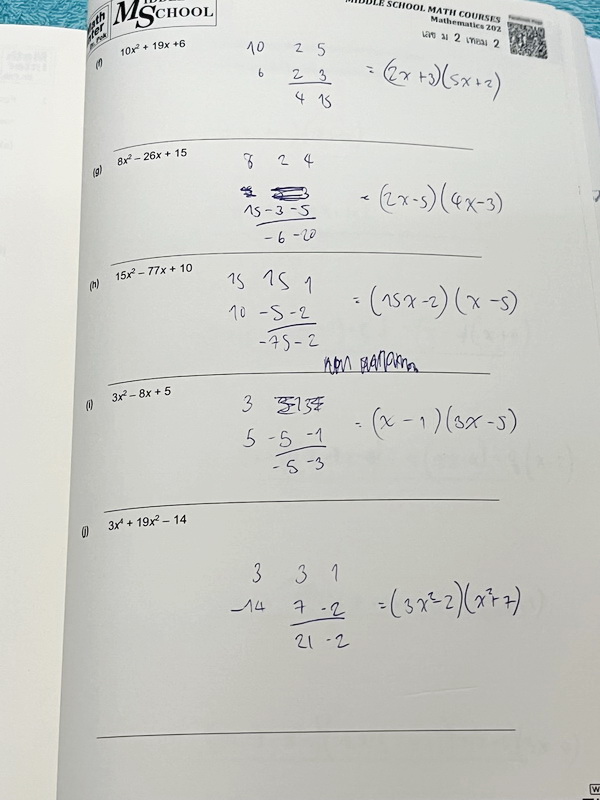 MS SCHOOL
MIDDLE SCHOOL MATH COURSES
Mathematics 202
เลข ม 2 เทอม 2
(f) 10x² + 19x +6
10 2 5
6 2 3
4 15
= (2x+3)(5x+2)
(g) 8x² – 26x + 15
8 2 4
15 -3 -5
-6 -20
= (2x-5)(4x-3)
(h) 15x² – 77x + 10
15 15 1
10 -5 -2
-75 -2
= (15x-2)(x-5)
(i) 3x² – 8x + 5
3
5 -5 -1
-5 -3
= (x-1)(3x-5)
(j) 3x⁴ + 19x² – 14
3 3 1
-14 7 -2
21 -2
= (3x²-2)(x²+7)